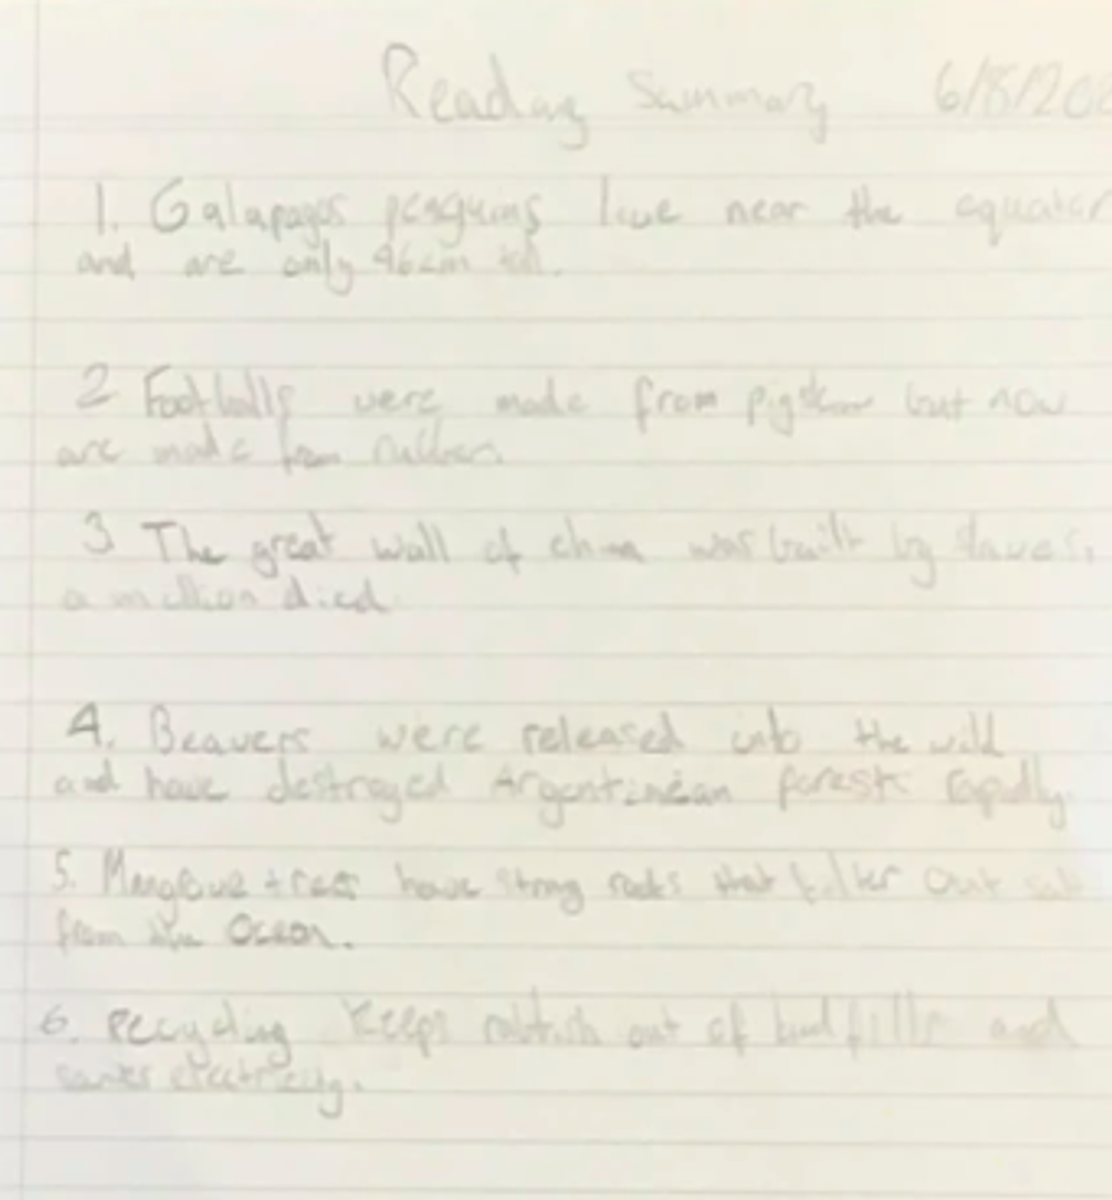 Reading Summary 6/8/20
1. Galapagos penguins live near the equator
and are only 46cm tall.
2 Footballs were made from pigskin but now
are made from rubber.
3 The great wall of china was built by slaves,
a million died.
4. Beavers were released into the wild
and have destroyed Argentinean forests rapidly.
5. Mangrove trees have strong roots that filter out salt
from the Ocean.
6. Recycling keeps rubbish out of landfills and
saves electricity.